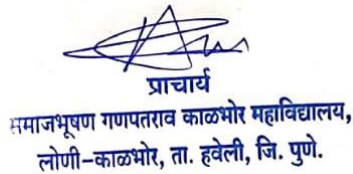 प्राचार्य
समाजभूषण गणपतराव काळभोर महाविद्यालय,
लोणी-काळभोर, ता. हवेली, जि. पुणे.